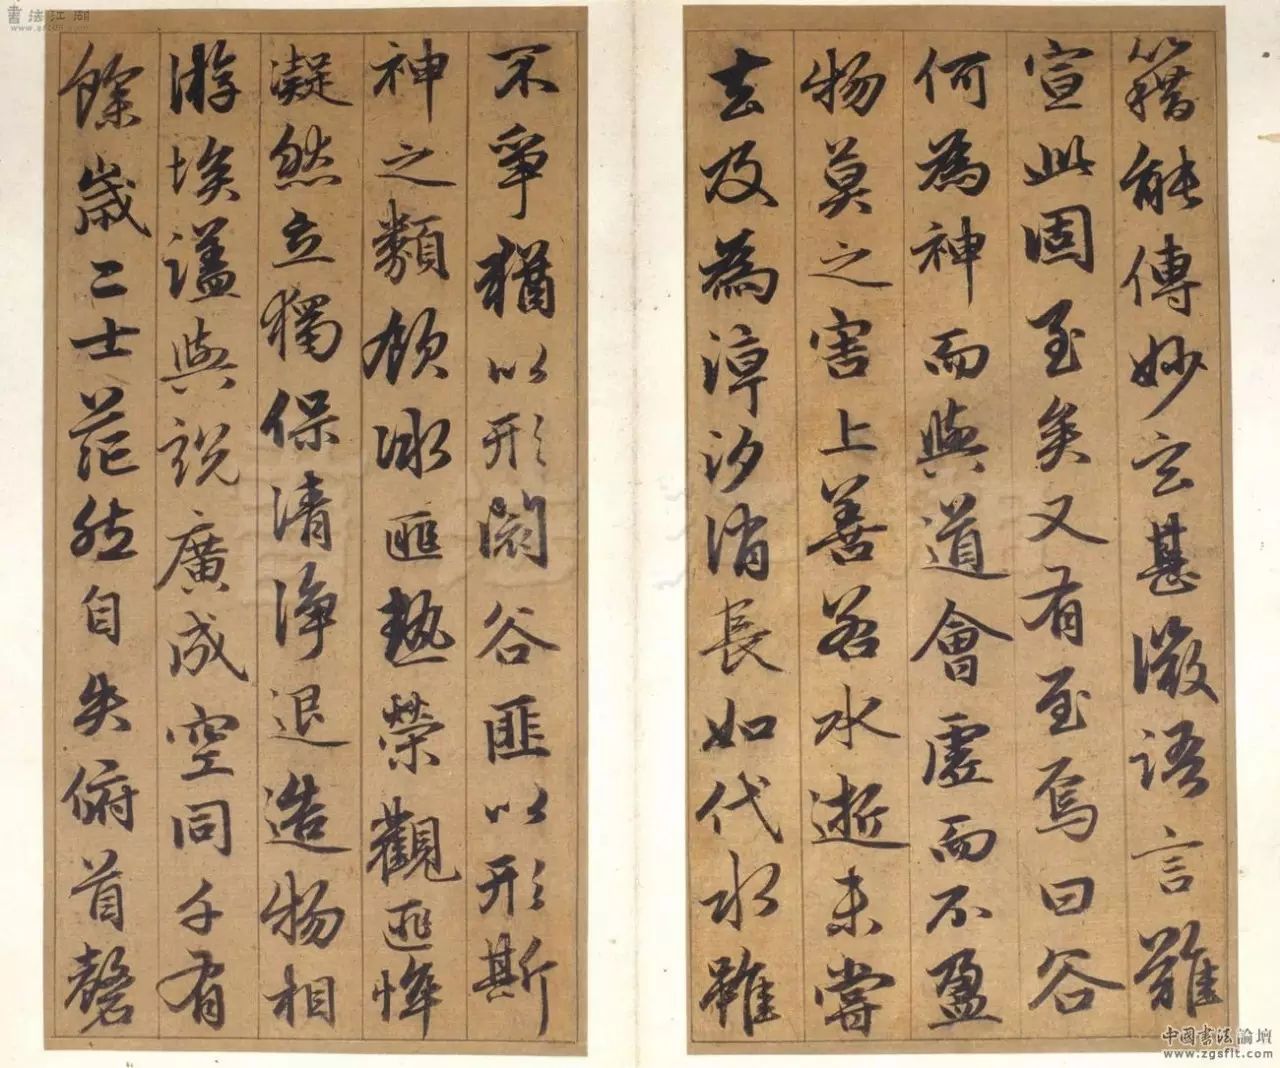 籍能傳妙玄甚微語言難
宣此固至矣又有至焉曰谷
何為神而與道會虛而不盈
物莫之害上善若水逝未嘗
去及為漳汐消長如代水雖
不爭猶以形閟谷匪以形斯
神之類頎泳匪熱榮觀匪悴
凝然立獨保清淨退造物相
游埃壒與説廣成空同千有
餘歲二士茫然自失俯首罄
書法江湖
中國書法論壇
www.zgsflt.com